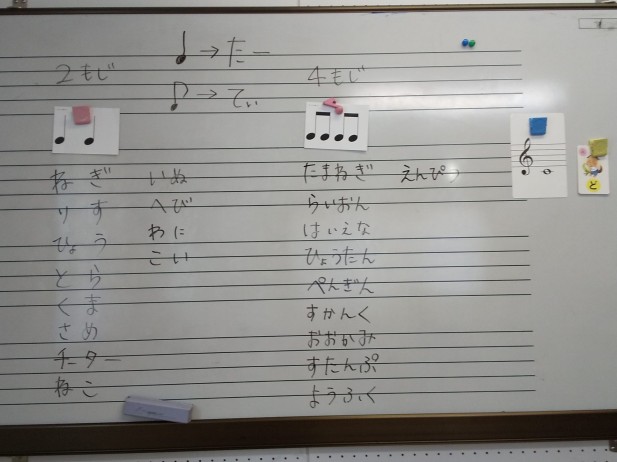 →たー
2もじ
4もじ
→てぃ
ねぎ
りす
ひょう
とら
くま
さめ
チーター
ねこ
いぬ
へび
わに
こい
たまねぎ
らいおん
はいえな
ひょうたん
ぺんぎん
すかんく
おおかみ
すたんぷ
ようふく
えんぴつ
ど